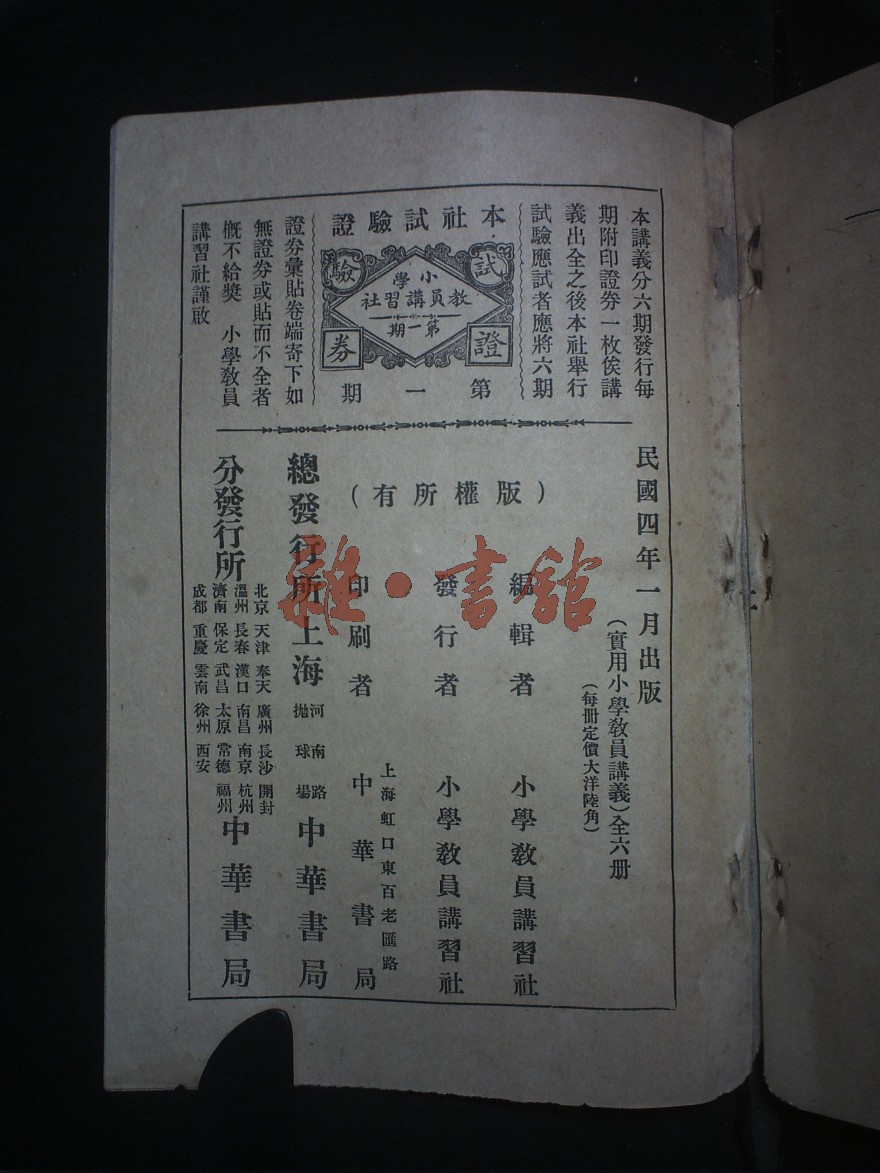 本講義分六期發行每
期附印證券一枚俟講
義出全之後本社舉行
試驗應試者應將六期
本社試驗證
試驗證券
小學
教員講習社
第一期
第一期
證券彙貼卷端寄下如
無證券或貼而不全者
概不給獎 小學教員
講習社謹啟
民國四年一月出版
(實用小學教員講義)全六册
(每冊定價大洋陸角)
(版權所有)
編輯者 小學教員講習社
發行者 小學教員講習社
印刷者 上海虹口東百老匯路 中華書局
總發行所上海 河南路 拋球場 中華書局
分發行所
北京 天津 奉天 廣州 長沙 開封
溫州 長春 漢口 南昌 南京 杭州
濟南 保定 武昌 太原 常德 福州
成都 重慶 雲南 徐州 西安
中華書局
雜·書館